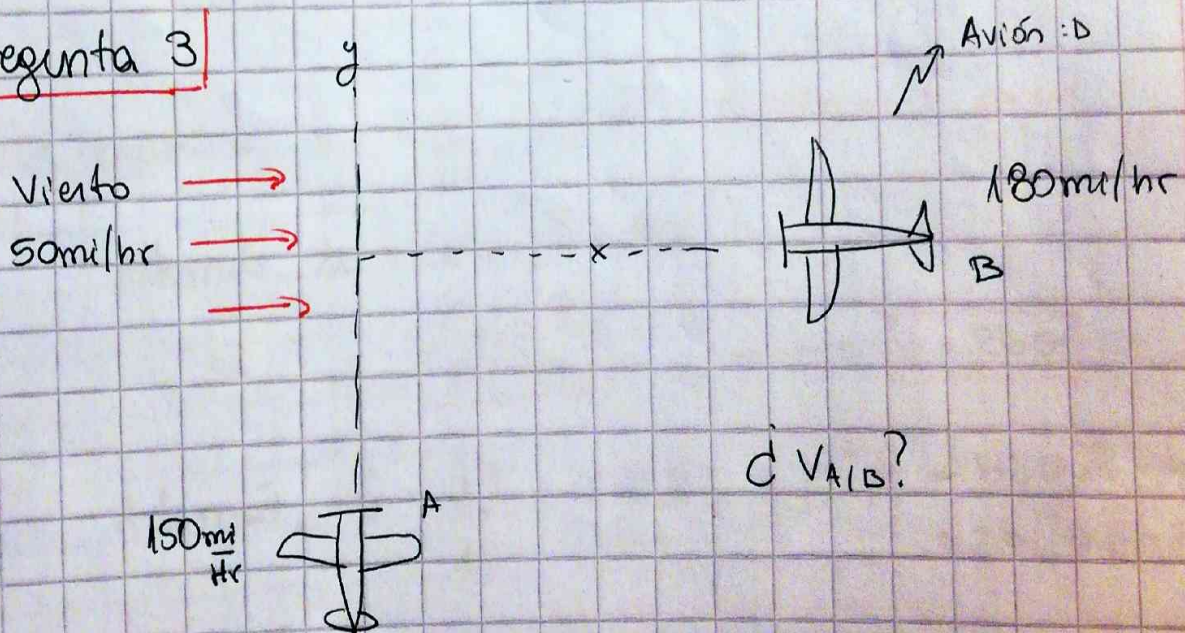 egunta 3
y
Avión :D
Viento
50mi/hr
x
180mi/hr
B
¿ VA/B?
A
150 mi
Hr